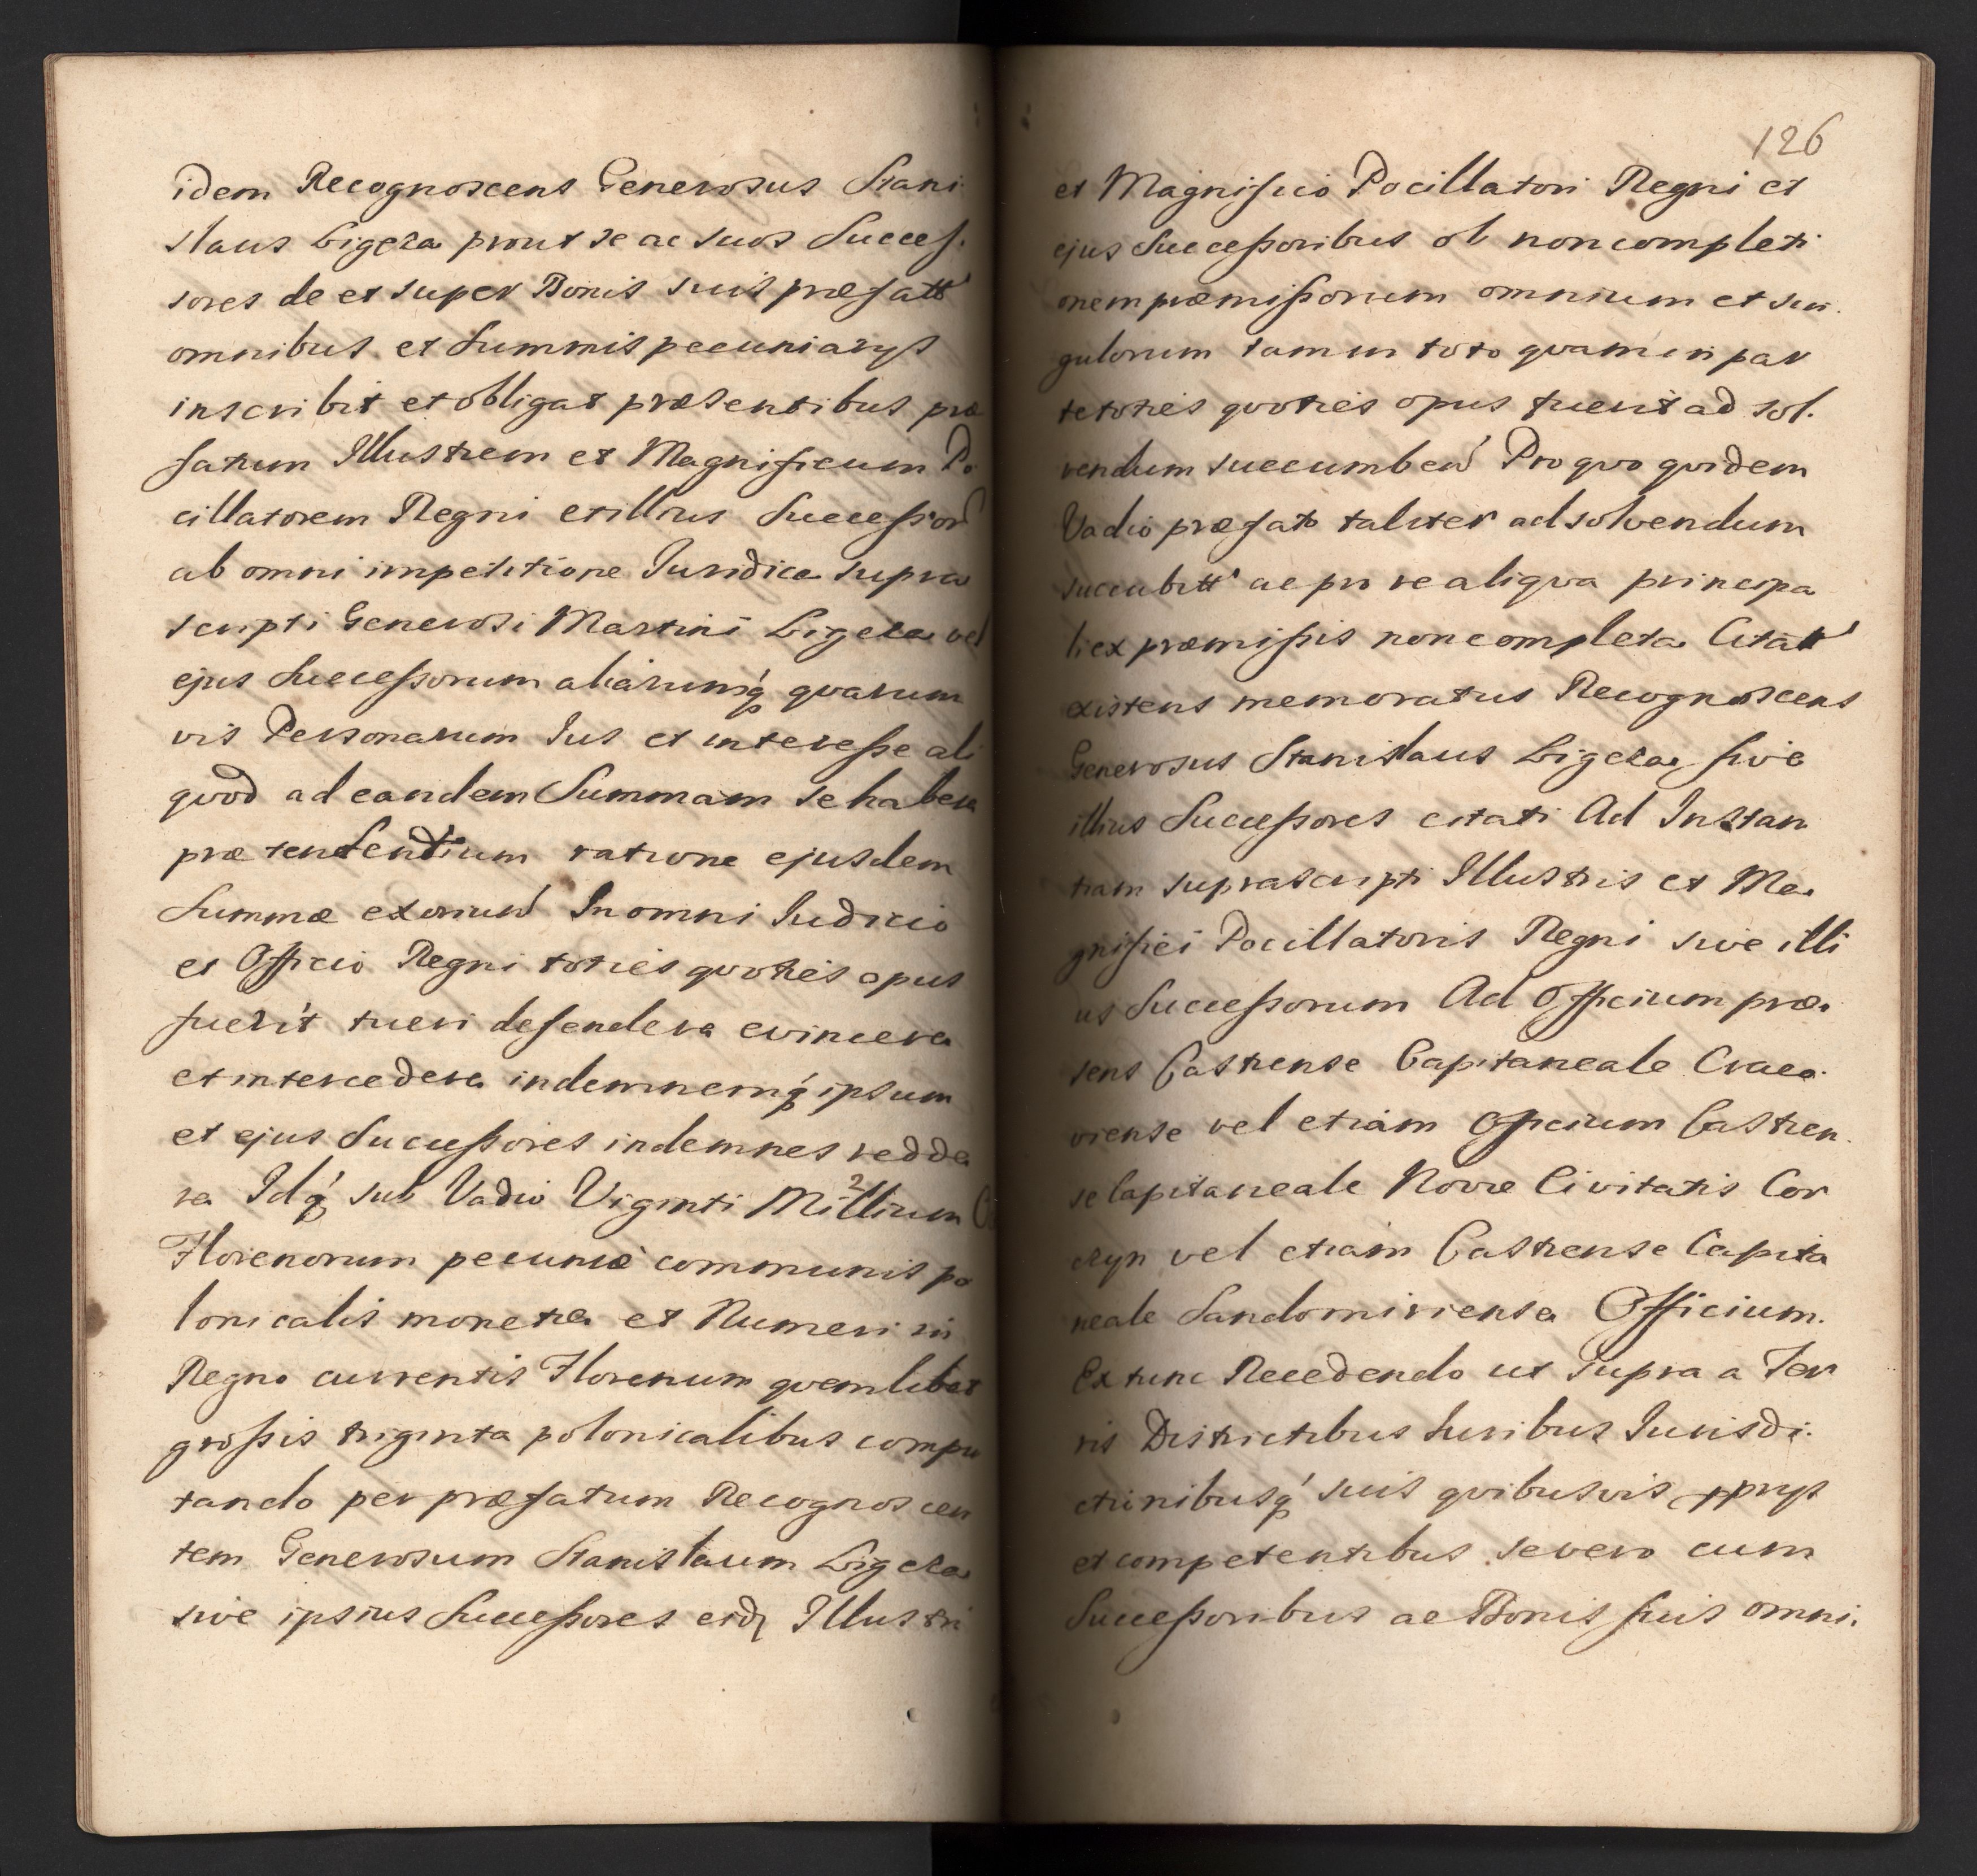 idem Recognoscens Generosus Stani
slaus Ligęza prout se ac suos Succes.
sores de et super Bonis suis præfatt
omnibus et Summis pecuniarys
inscribit et obligat præsentibus præ
fatum Illustrem et Magnificum Po
cillatorem Regni et illius Successor
ab omni impetitione Iuridica supra
scripti Generosi Martini Ligęza vel
ejus Successorum aliarumq́ qvarum
vis Personarum Ius et interesse ali
qvod ad eandem Summam se habere
præ tendentium ratione ejusdem
Summæ exoriund In omni Iudicio
et Officio Regni toties qvoties opus
fuerit tueri defendere evincere
et intercedere indemnemq́ ipsum
et ejus Successores indemnes redde
re Idq́ sub Vadio Viginti Millium
Florenorum pecuniæ communis po
lonicalis monetæ et Numeri in
Regno currentis Florenum qvemlibet
grossis triginta polonicalibus compu
tando per præfatum Recognoscen
tem Generosum Stanislaum Ligęza
sive ipsius Successores eidq Illustri
126
et Magnifico Pocillatori Regni et
ejus Successoribus ob noncompleti
onem præmissorum omnium et sin.
gulorum tam in toto qvam in par
te toties qvoties opus fuerit ad sol.
vendum succumben Pro qvo qvidem
Vadio præfato taliter ad solvendum
succubitt ac pro re aliqva principa
li ex præmissis non completa Citatt
existens memoratus Recognoscens
Generosus Stanislaus Ligęza sive
illius Successores citati Ad Instan
tiam suprascripti Illustris et Ma.
gnifici Pocillatoris Regni sive illi
us Successorum Ad Officium præ.
sens Castrense Capitaneale Craco.
viense vel etiam Officium Castren.
se Capitaneale Novæ Civitatis Cor
czyn vel etiam Castrense Capita
neale Sandomiriense Officium.
Ex tunc Recedendo ut supra a Ter
ris Districtibus Iuribus Iurisdi.
ctionibusq́ suis qvibusvis pprys
et competentibus se vero cum
Successoribus ac Bonis suis omni.